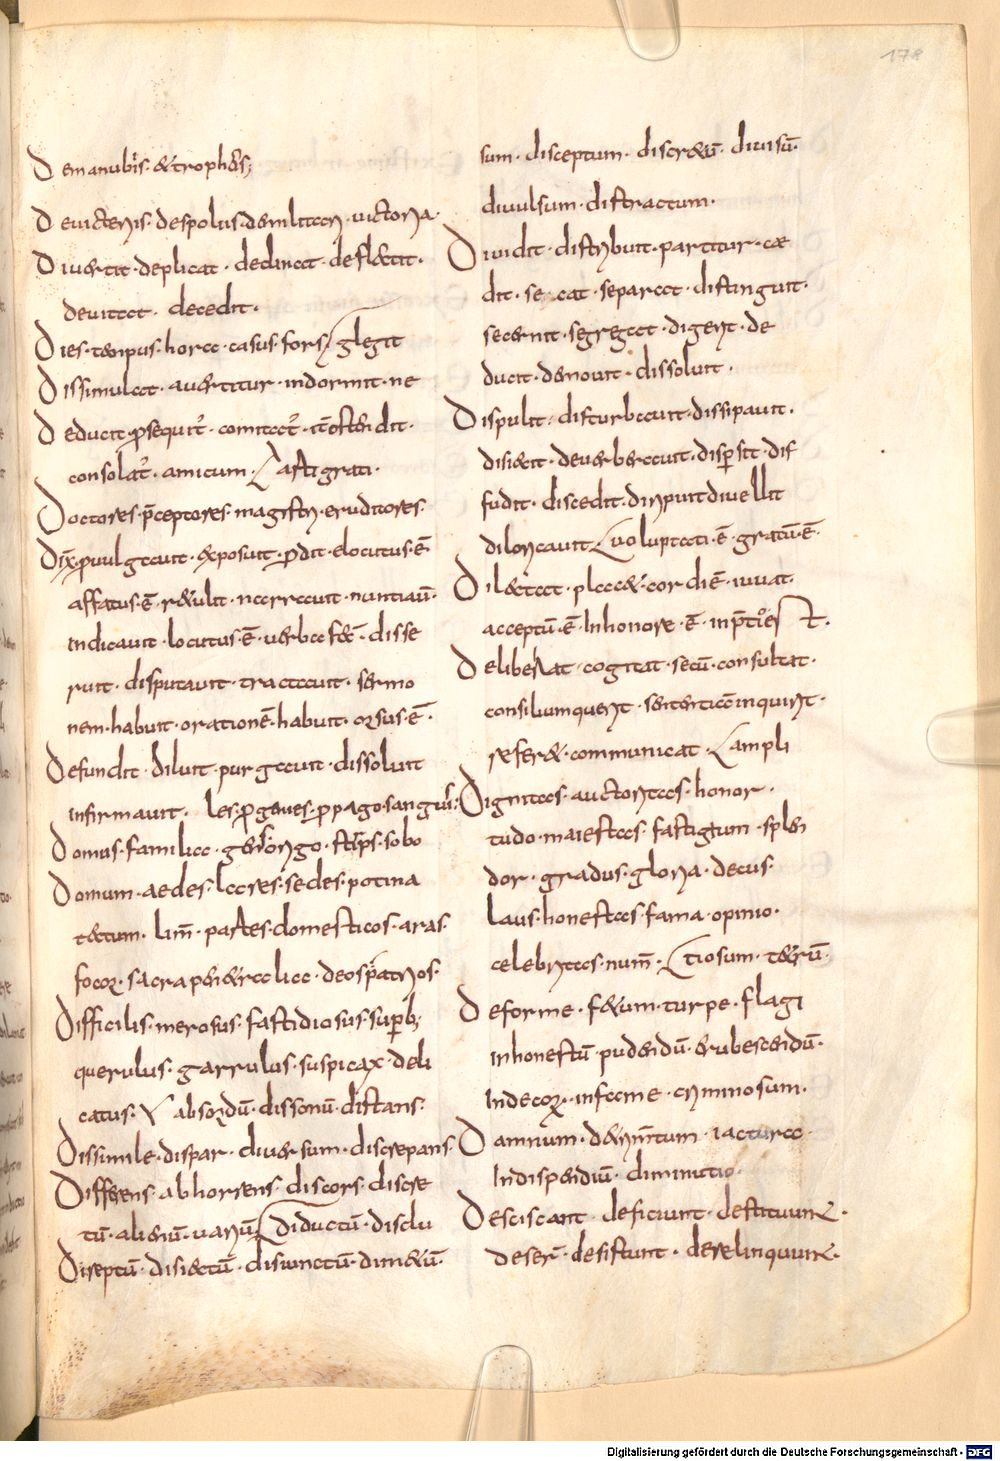 178
Demanubiis· & trophæis;
Deuictoriis· despoliis· demilitari· uictoria·
Diuertit· deplicat· declinat· deflectit·
deuitat· decedit·
Dies· tempus· hora· casus· fors/ glegit
Dissimulat· auertitur· indormit· ne
Deducit· ꝓsequit᷑· comitat᷑· ostendit·
consolat᷑· amicum· / castigrati·
Doctores· p̄ceptores· magistri· eruditores·
Dix̄· ꝓuulgauit· exposuit· ꝓdit· elocutus· ē
affatus· ē· r&ulit· narrauit· nuntiau̅·
indicauit· locutus· ē· uerba fec̄· disse
ruit· disputauit· tractauit· sermo
nem· habuit· orationē· habuit· orsus· ē·
Defundit· diluit· purgauit· dissoluit
infirmauit· les· ꝓgenies· ꝓpago· sanguis·
Domus· familia· gens· origo· stirps· sobo
Domum· aedes· lares· sedes· potina
tectum· lim̄· partes· domesticos· aras·
focoꝝ· sacra penetralia· deos patrios·
Difficilis· merosus· fastidiosus· superb;
querulus· garrulus· suspicax· deli
catus· / absordū· dissonū· distans·
Dissimile· dispar· diuersum· discrepans·
Differens· abhorrens· discors· discre
tū· alienū· uariū / diductū· disclu
Direptū· disiectū· disiunctū· dimeū·
sum· disceptum· discr&ū· diuisū·
diuulsum· distractum·
Diuidit· distribuit· partitur· cæ
dit· secat· separat· distinguit·
secernit· segregat· digerit· de
ducit· demouit· dissoluit·
Dispulit· disturbauit· dissipauit·
disiecit· deuerberauit· dispersit· dif
fudit· discedit· diripuit diuellit
diloricauit / uoluptati· ē· gratū· ē
Dilectat· plac&· cordi ē· iuuat·
acceptū· ē· Inhonore· ē·
Deliberat· cogitat· secū· consultat·
consilium querit· sententiā inquirit·
refer&· communicat / ampli
Dignitas· auctoritas· honor·
tudo· maiestas· fastigium· splen
dor· gradus· gloria· decus·
laus· honestas· fama· opinio·
celebritas· num̄· / tiosum· t&rū·
Deforme· f&um· turpe· flagi
Inhonestū· pudendū· erubescendū·
Indecoꝝ· infame· criminosum·
Damnum· detrim̄tum· iactura·
Indispendiū· diminutio·
Desciscant· deficiunt· destituunt·
deser̄· desistunt· derelinquunt·
Digitalisierung gefördert durch die Deutsche Forschungsgemeinschaft - DFG